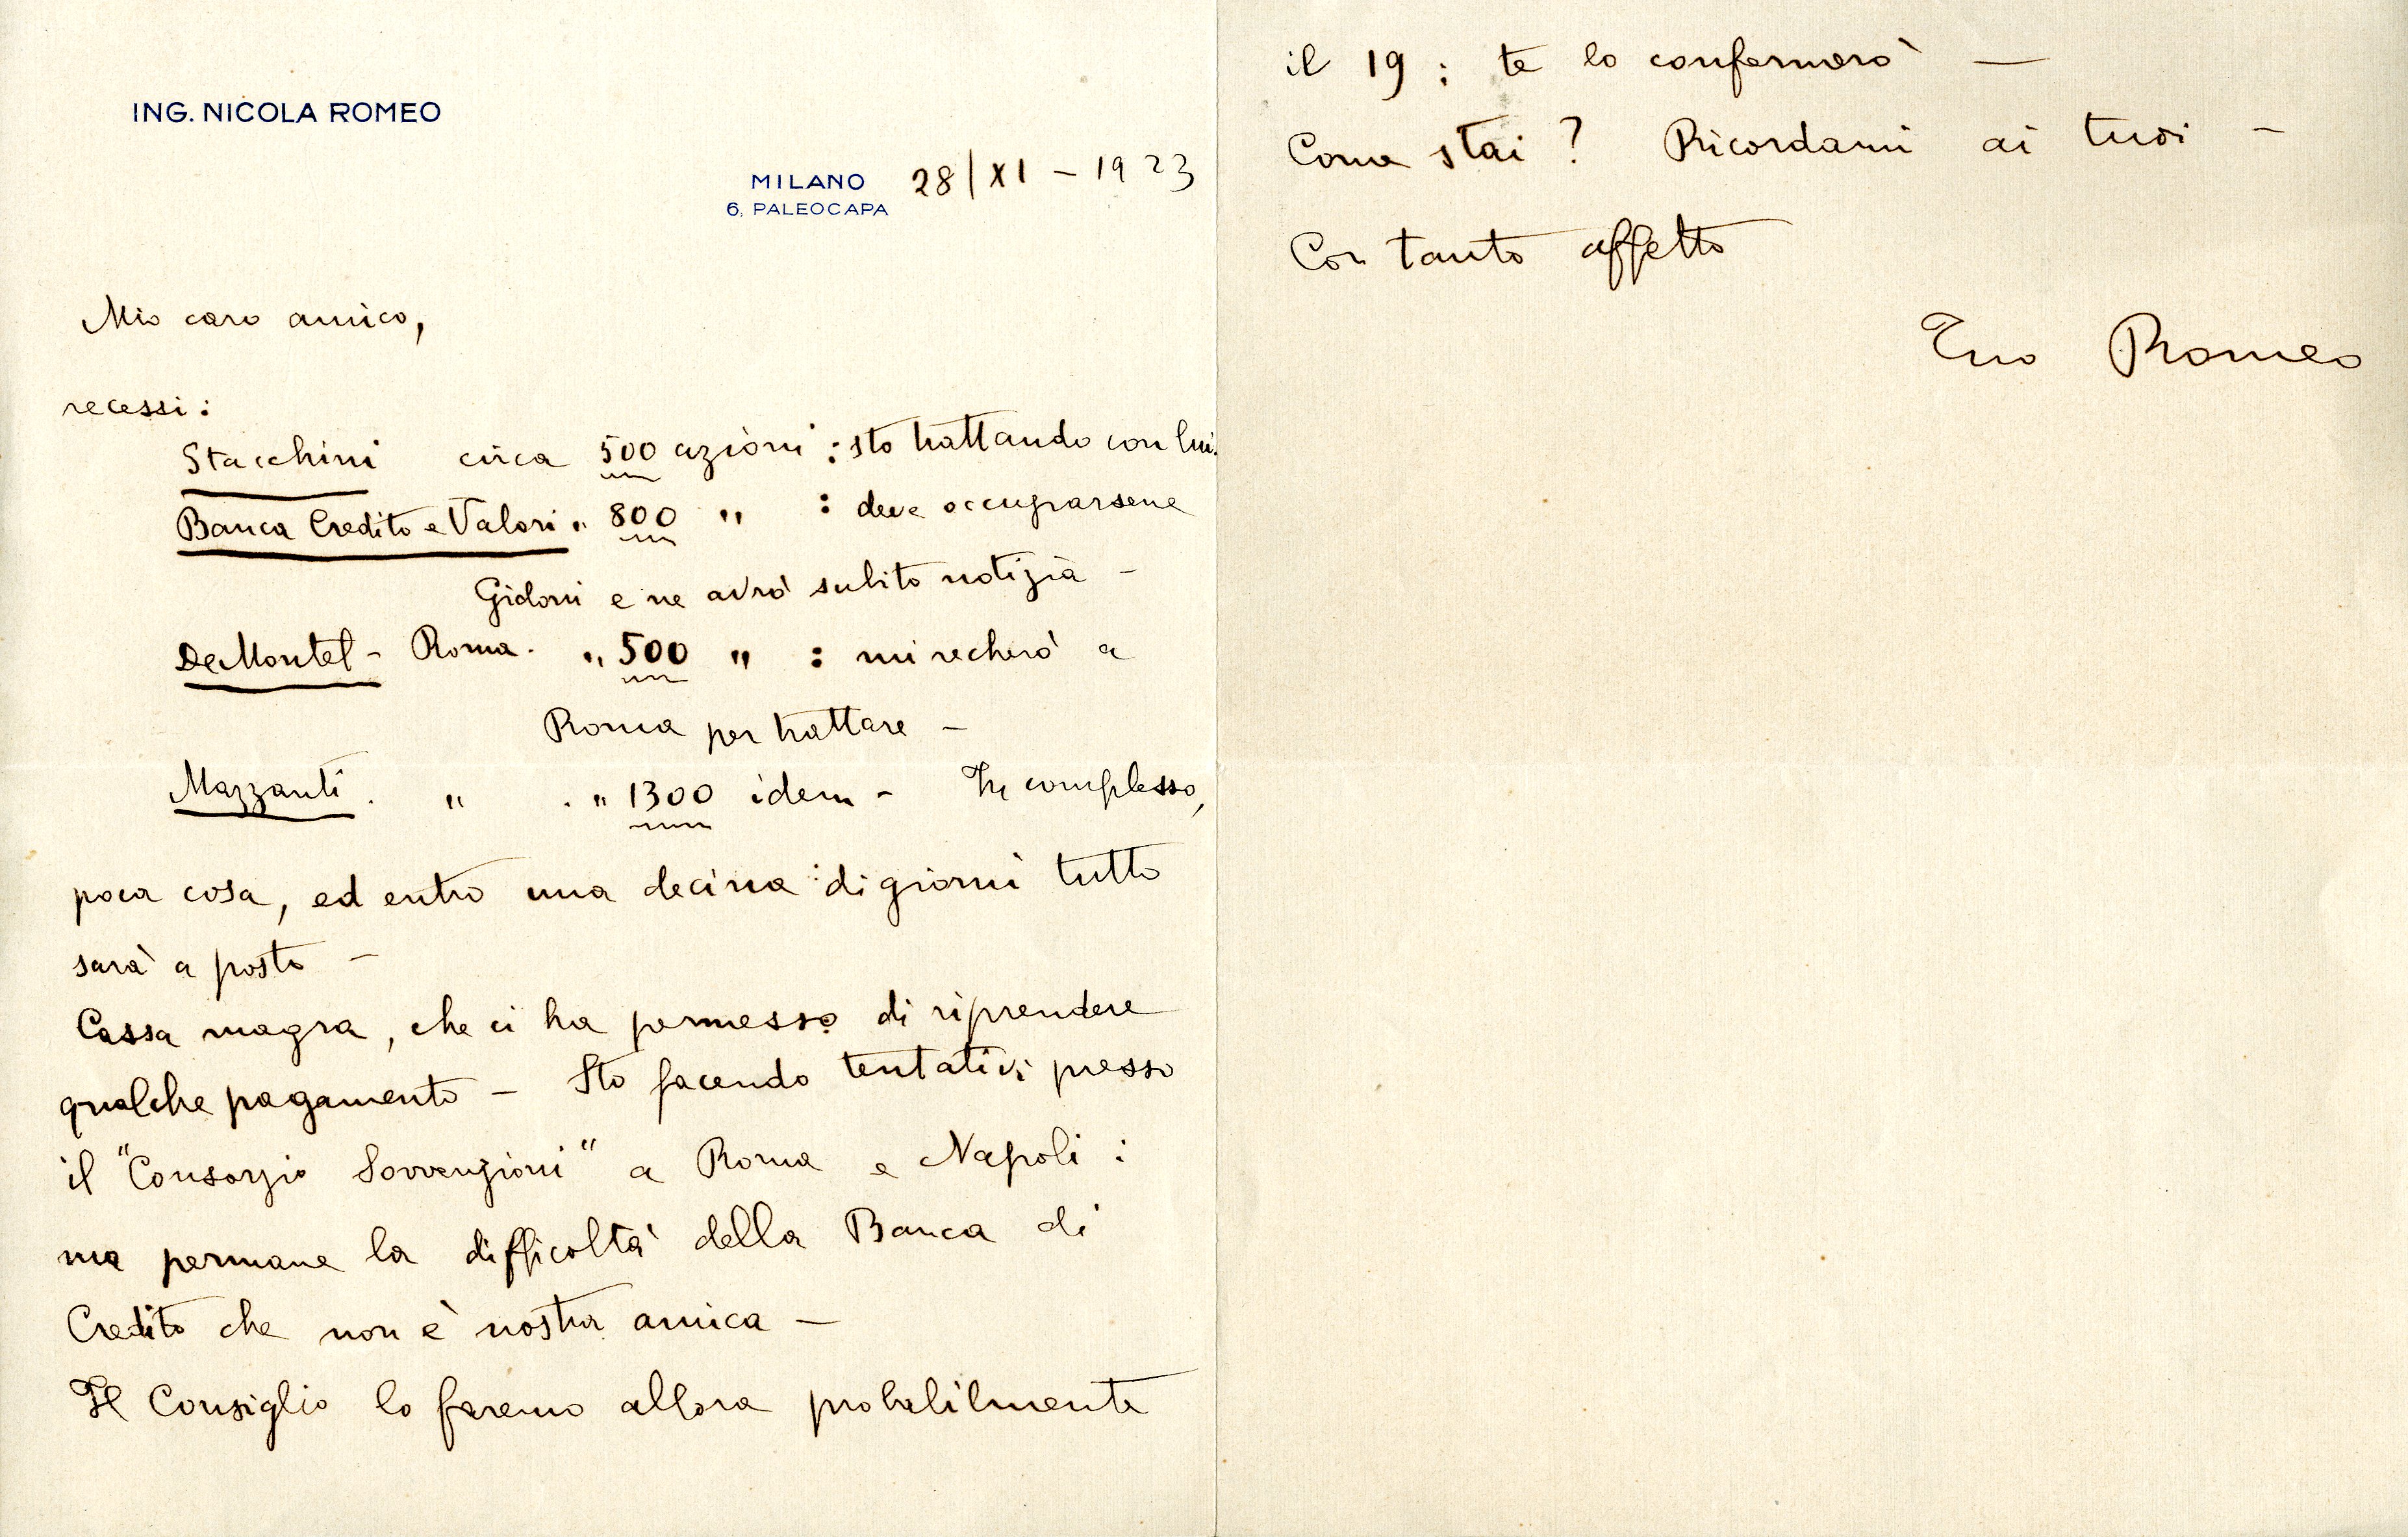 ING. NICOLA ROMEO
MILANO 28/XI – 1923
6, PALEOCAPA
Mio caro amico,
recessi:
Stacchini circa 500 azioni : sto trattando con lui.
Banca Credito e Valori " 800 " : deve occuparsene
Gidoni e ne avrò subito notizia –
De Montel – Roma. " 500 " : mi recherò a
Roma per trattare –
Mazzanti. " . " 1300 idem – In complesso,
poca cosa, ed entro una decina di giorni tutto
sarà a posto –
Cassa magra, che ci ha permesso di riprendere
qualche pagamento – Sto facendo tentativi presso
il "Consorzio Sovvenzioni" a Roma e Napoli :
ma permane la difficoltà della Banca di
Credito che non è nostra amica –
Il Consiglio lo faremo allora probabilmente
il 19 : te lo confermerò —
Come stai ? Ricordami ai tuoi –
Con tanto affetto
Tuo Romeo